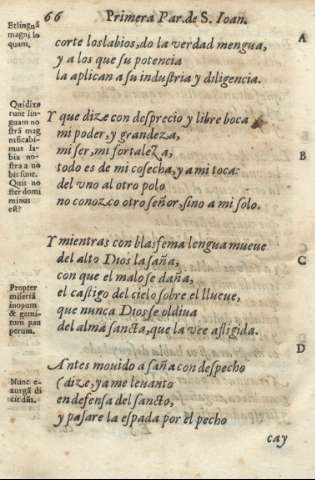 66 Primera Par. de S. Ioan.
Et linguā
magni lo
quam,
corte los labios, do la verdad mengua,
y a los que su potencia
la aplican a su industria y diligencia.
A
Qui dixe
runt lin-
guam no
strā mag
nificabi-
mus la-
bia no-
stra a no
bis sunt.
Quis no
ster domi
minus
est?
Y que dize con desprecio y libre boca
mi poder, y grandeza,
mi ser, mi fortaleza,
todo es de mi cosecha, y a mi toca:
del vno al otro polo
no conozco otro señor, sino a mi solo.
B
Y mientras con blasfema lengua mueue
del alto Dios la saña,
con que el malo se daña,
el castigo del cielo sobre el llueue,
que nunca Dios se oluida
del alma sancta, que la vee afligida.
C
Propter
miseriā
inopum
& gemi-
tum pau
perum.
Antes mouido a saña con despecho
(dize, ya me leuanto
en defensa del sancto,
y passare la espada por el pecho
D
Nunc e-
xurgā di
cit dñs.
cay